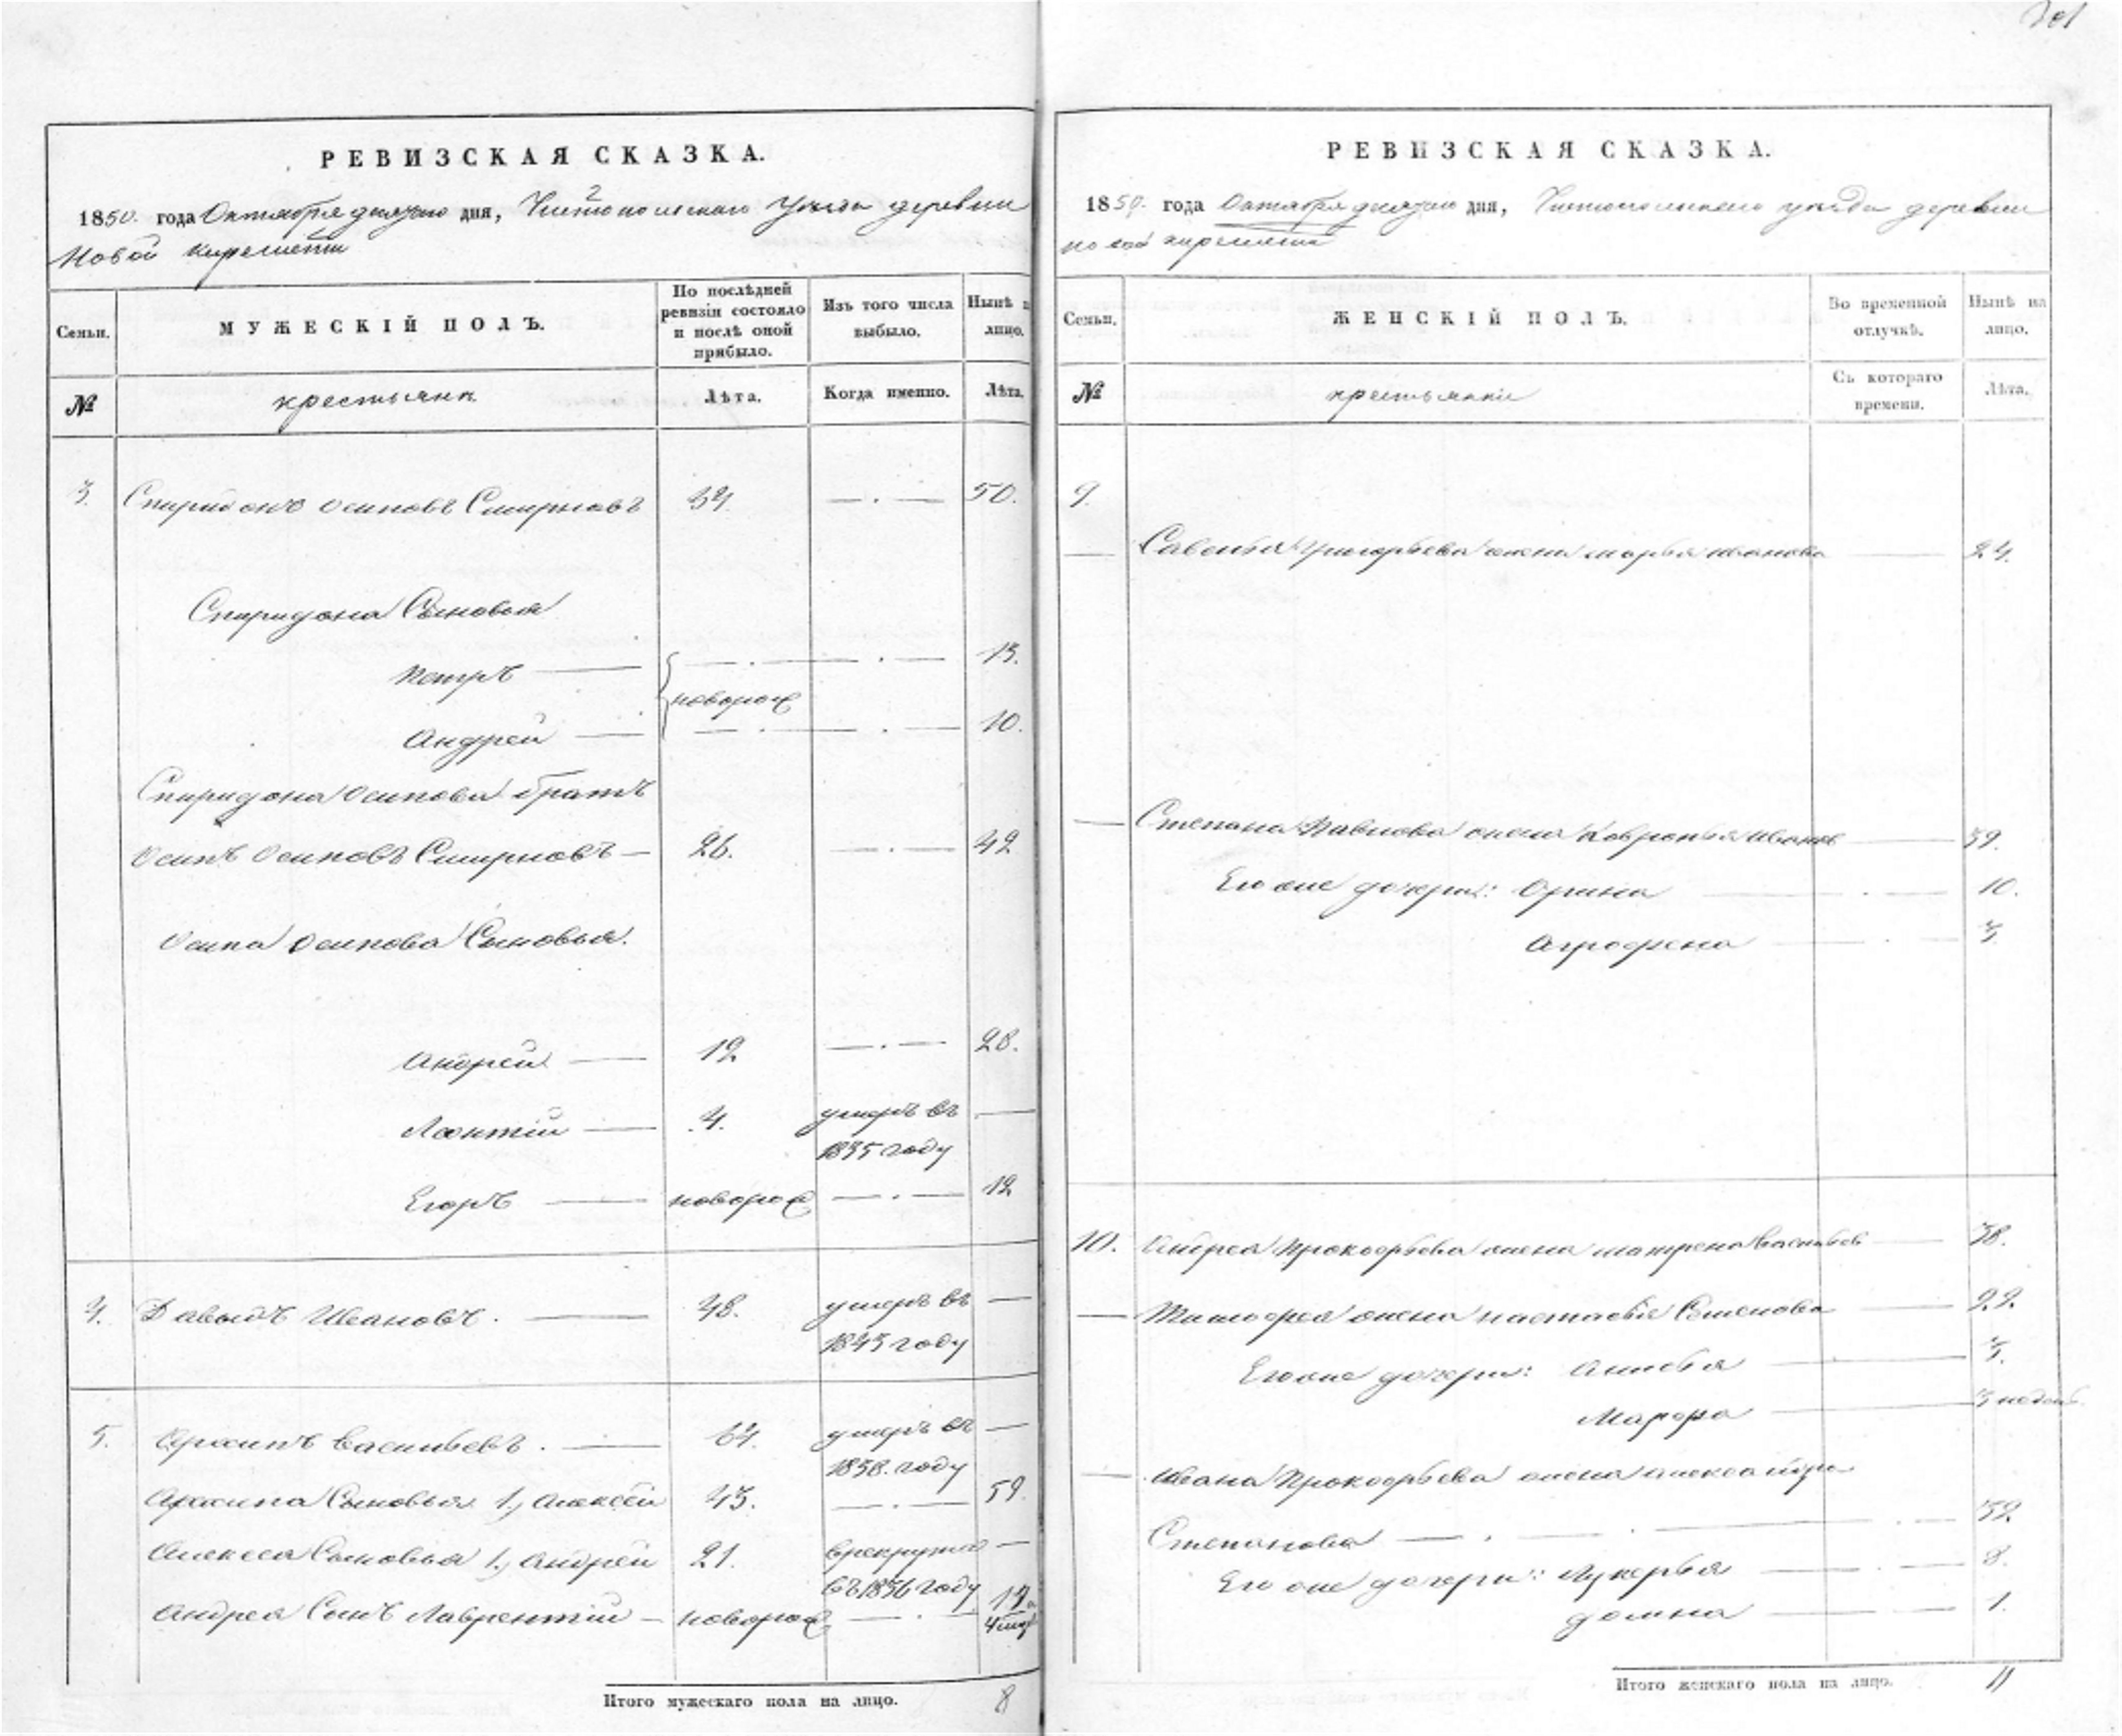 201
РЕВИЗСКАЯ СКАЗКА.
1850. года Октября дня, Чистопольскаго Уезда деревни
Новой Киремети
Семьи. МУЖЕСКІЙ ПОЛЪ. По послѣдней ревизіи состояло и послѣ оной прибыло. Изъ того числа выбыло. Нынѣ лицо.
№ крестьяне Лѣта. Когда именно. Лѣта.
3. Спиридонъ Осиповъ Смирновъ 34. 50.
Спиридона Сыновья
Петръ 13.
новорож
Андрей 10.
Спиридона Осипова братъ
Осипъ Осиповъ Смирновъ 26. 42
Осипа Осипова Сыновья.
Андрей 12 28.
Леонтій 4. умеръ въ
1835 году
Егоръ новорож 12
4. Давыдъ Ивановъ. 48. умеръ въ
1843 году
5. Архипъ Васильевъ. 64. умеръ въ
1838. году
Архипа Сыновья 1, Алексей 43. 59.
Алексея Сыновья 1, Андрей 21. въ рекруты
въ 1836 году
Андрея Сынъ Лаврентій новорож
Итого мужескаго пола на лицо. 8
РЕВИЗСКАЯ СКАЗКА.
1850. года Октября дня, Чистопольскаго уезда деревни
новой киремети
Семьи. ЖЕНСКІЙ ПОЛЪ. Во временной отлучкѣ. Нынѣ на лицо.
№ крестьянки Съ котораго времени. Лѣта.
9.
Савелья Григорьева жена марья иванова 24.
Степана Павлова жена Ховронья Иванов 39.
Его же дочери: Орина 10.
Аграфена 3.
10. Андрея Прокофьева жена матрена Васильев 38.
Тимофея жена настасья Семенова 22.
Его же дочери: 3.
3 недель
Ивана Прокофьева жена александра
Степанова 32.
Его же дочери: Лукерья 8.
домна 1.
Итого женскаго пола на лицо. 11